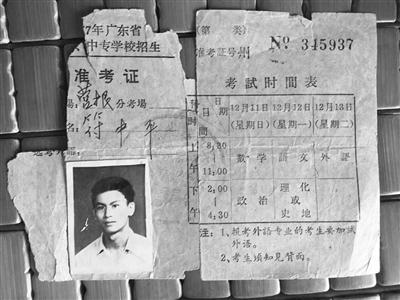 7年广东省
中专学校招生
准考证
分考场
(第 类)
准考证号 州 № 345937
考試时間表
日期 12月11日 12月12日 12月13日
时間 (星期日) (星期一) (星期二)
上午 8,30
11,00
数学 語文 外語
下午 2,00
4,30
政治 理化
或
史地
注:1、报考外语专业的考生要加試
外语。
2、考生須知見背面。